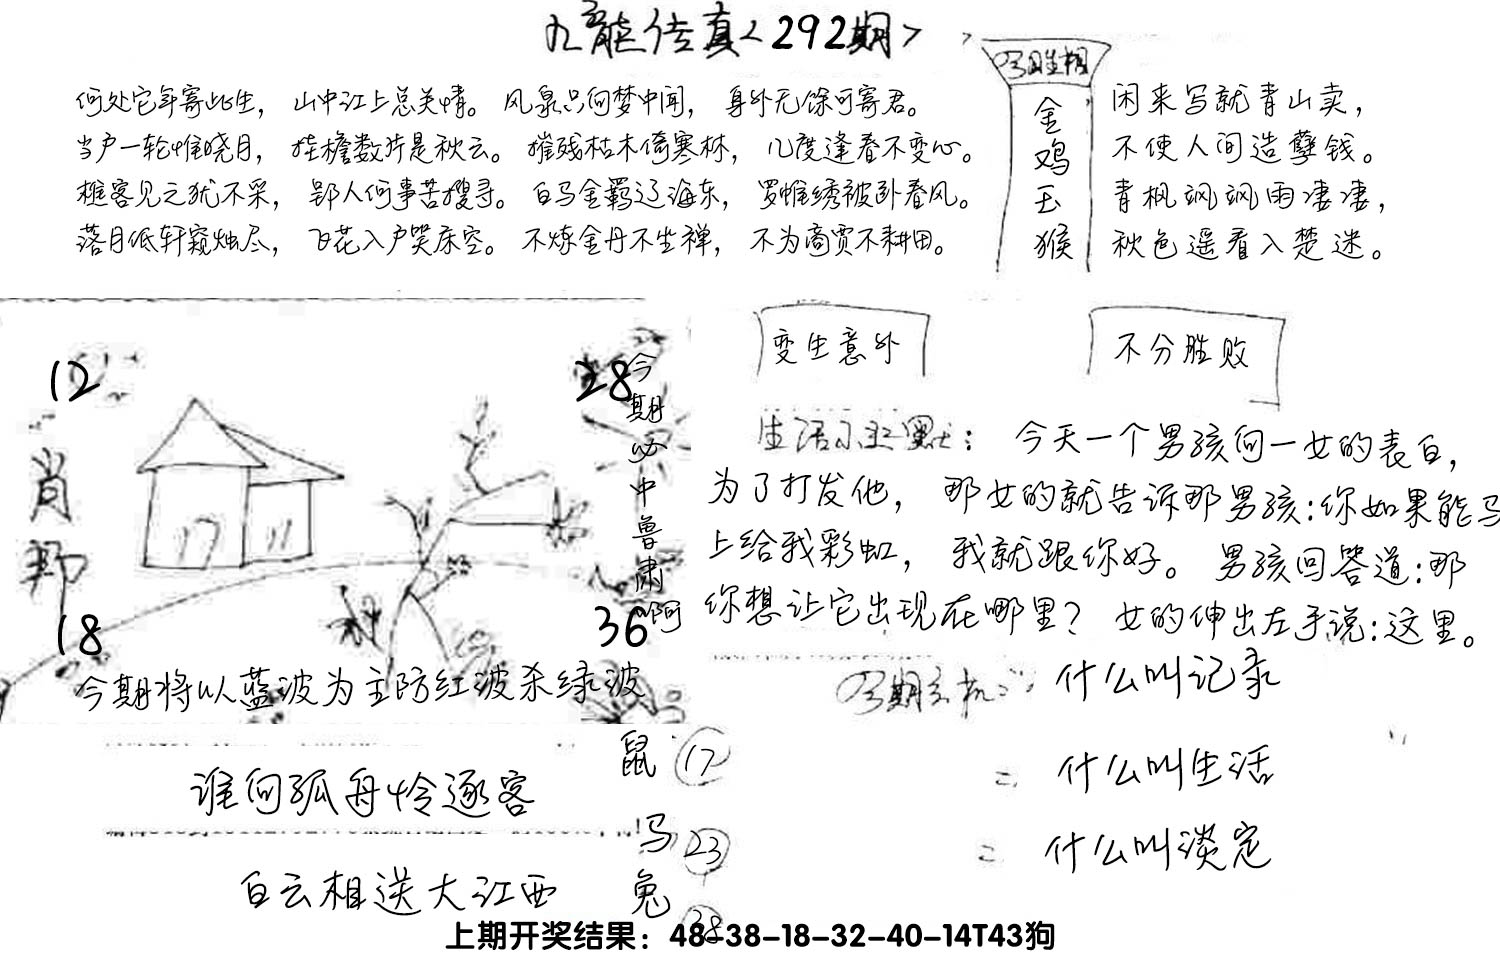 九龙传真<292期>
何处它年寄此生，山中江上总关情。风泉只向梦中闻，身外无馀可寄君。
当户一轮惟晓月，挂檐数片是秋云。摧残枯木倚寒林，几度逢春不变心。
樵客见之犹不采，郢人何事苦搜寻。白马金羁辽海东，罗帷绣被卧春风。
落月低轩窥烛尽，飞花入户笑床空。不炼金丹不坐禅，不为商贾不耕田。
今期生相
金鸡玉猴
闲来写就青山卖，
不使人间造孽钱。
青枫飒飒雨凄凄，
秋色遥看入楚迷。
12
28
肖
18
36
今期必中鲁肃啊
今期将以蓝波为主防红波杀绿波
变生意外
不分胜败
生活小幽默：今天一个男孩向一女的表白，
为了打发他，那女的就告诉那男孩：你如果能马
上给我彩虹，我就跟你好。男孩回答道：那
你想让它出现在哪里？女的伸出左手说：这里。
今期玄机：什么叫记录
什么叫生活
什么叫淡定
谁向孤舟怜逐客
白云相送大江西
鼠 17
马 23
兔 38
上期开奖结果：48-38-18-32-40-14T43狗